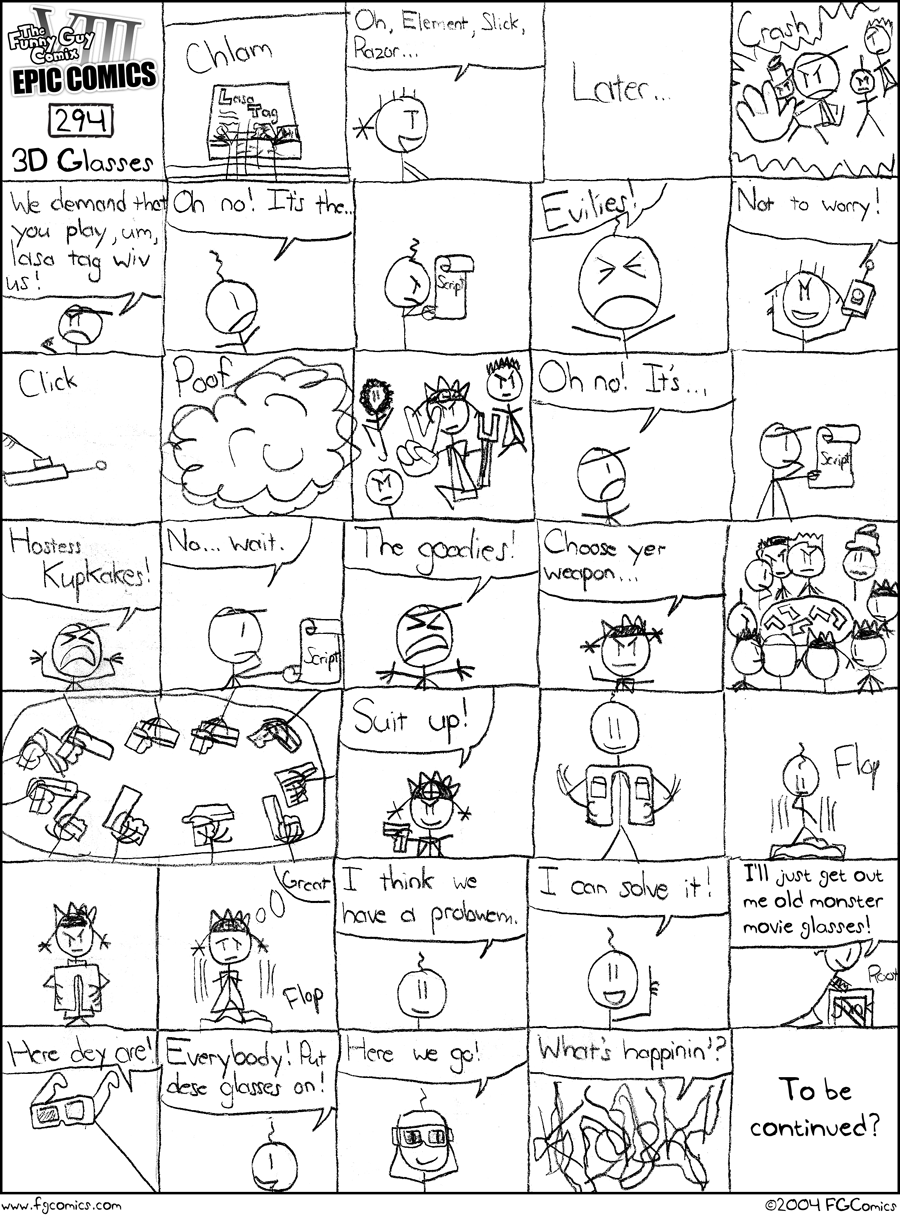 The
Funny Guy
Comix
VIII
EPIC COMICS
294
3D Glasses
Chlam
Lasa
Tag
Oh, Element, Slick,
Razor...
Later...
Crash
We demand that
you play, um,
lasa tag wiv
us!
Oh no! It's the..
Script
Evilies!
Not to worry!
Click
Poof
Oh no! It's...
Script
Hostess
Kupkakes!
No... wait.
Script
The goodies!
Choose yer
weapon...
Suit up!
Flop
Great
Flop
I think we
have a probwem.
I can solve it!
I'll just get out
me old monster
movie glasses!
Root
Junk
Here dey are!
Everybody! Put
dese glasses on!
Here we go!
What's happinin'?
To be
continued?
www.fgcomics.com
©2004 FGComics